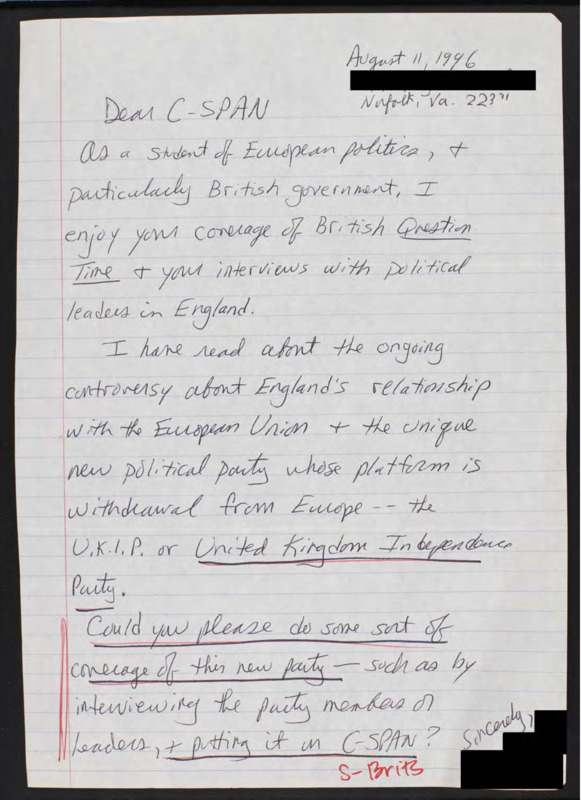 August 11, 1996
Norfolk, Va.
Dear C-SPAN
As a student of European politics, +
particularly British government, I
enjoy your coverage of British Question
Time + your interviews with political
leaders in England.
I have read about the ongoing
controversy about England's relationship
with the European Union + the unique
new political party whose platform is
withdrawal from Europe -- the
U.K.I.P. or United Kingdom Independence
Party.
Could you please do some sort of
coverage of this new party — such as by
interviewing the party members or
leaders, + putting it on C-SPAN?
Sincerely,
S-Brits